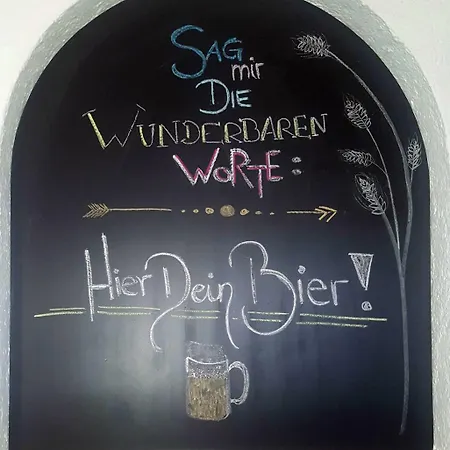 SAG
mir
DIE
WUNDERBAREN
WORTE:
Hier Dein Bier!